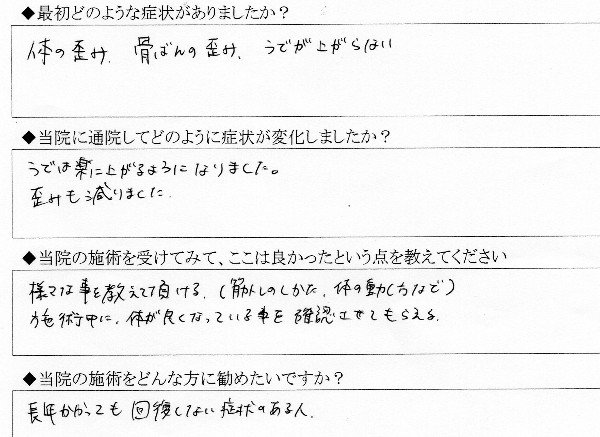 ◆最初どのような症状がありましたか？
体の歪み、骨ばんの歪み、うでが上がらない
◆当院に通院してどのように症状が変化しましたか？
うでは楽に上がるようになりました。
歪みも減りました
◆当院の施術を受けてみて、ここは良かったという点を教えてください
様々な事を教えて頂ける。(筋トレのしかた、体の動し方など)
施術中に、体が良くなっている事を確認させてもらえる。
◆当院の施術をどんな方に勧めたいですか？
長年かかっても回復しない症状のある人、